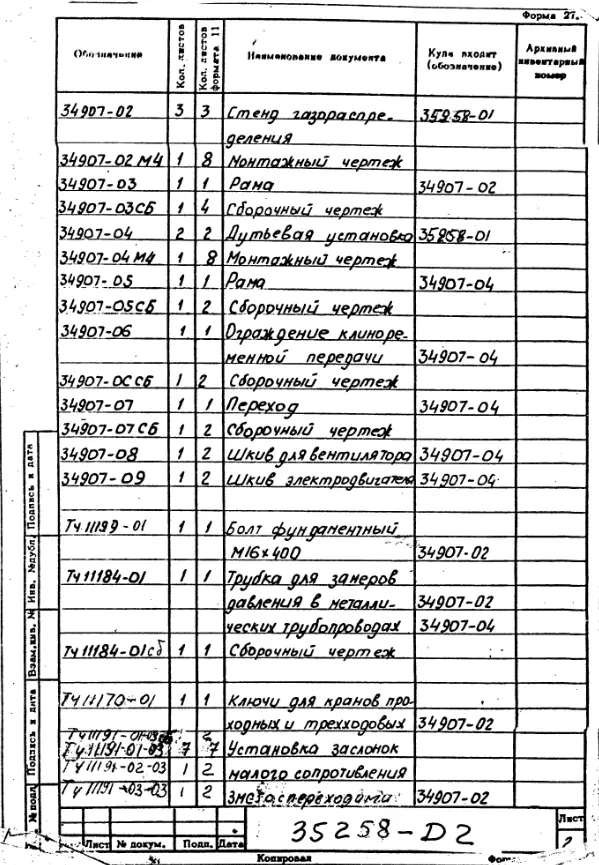 Форма 27.
Обозначение Кол. листов Кол. листов формата 11 Наименование документа Куда входит (обозначение) Архивный инвентарный номер
34907-02 3 3 Стенд газораспре- 35258-01
деления
34907-02 МЧ 1 8 Монтажный чертеж
34907-03 1 1 Рама 34907-02
34907-03СБ 1 4 Сборочный чертеж
34907-04 2 2 Дутьевая установка 35258-01
34907-04 МЧ 1 8 Монтажный чертеж
34907-05 1 1 Рама 34907-04
34907-05СБ 1 2 Сборочный чертеж
34907-06 1 1 Ограждение клиноре-
менной передачи 34907-04
34907-0ССБ 1 2 Сборочный чертеж
34907-07 1 1 Переход 34907-04
34907-07СБ 1 2 Сборочный чертеж
34907-08 1 2 Шкив для вентилятора 34907-04
34907-09 1 2 Шкив электродвигателя 34907-04
Тч 11199-01 1 1 Болт фундаментный
М16х400 34907-02
Тч 11184-01 1 1 Трубка для замеров
давления в металли- 34907-02
ческих трубопроводах 34907-04
Тч 11184-01сб 1 1 Сборочный чертеж
Тч 11170-01 1 1 Ключи для кранов про-
ходных и трехходовых 34907-02
Тч 11191-01-03 7 7 Установка заслонок
Тч 11191-02-03 1 2 малого сопротивления
Тч 11191-03-03 1 2 34907-02
Подпись и дата
Инв. № дубл.
Взам. инв. №
Подпись и дата
№ подл.
35258-D2
Лист
2
Лист № докум. Подп. Дата
Копировал